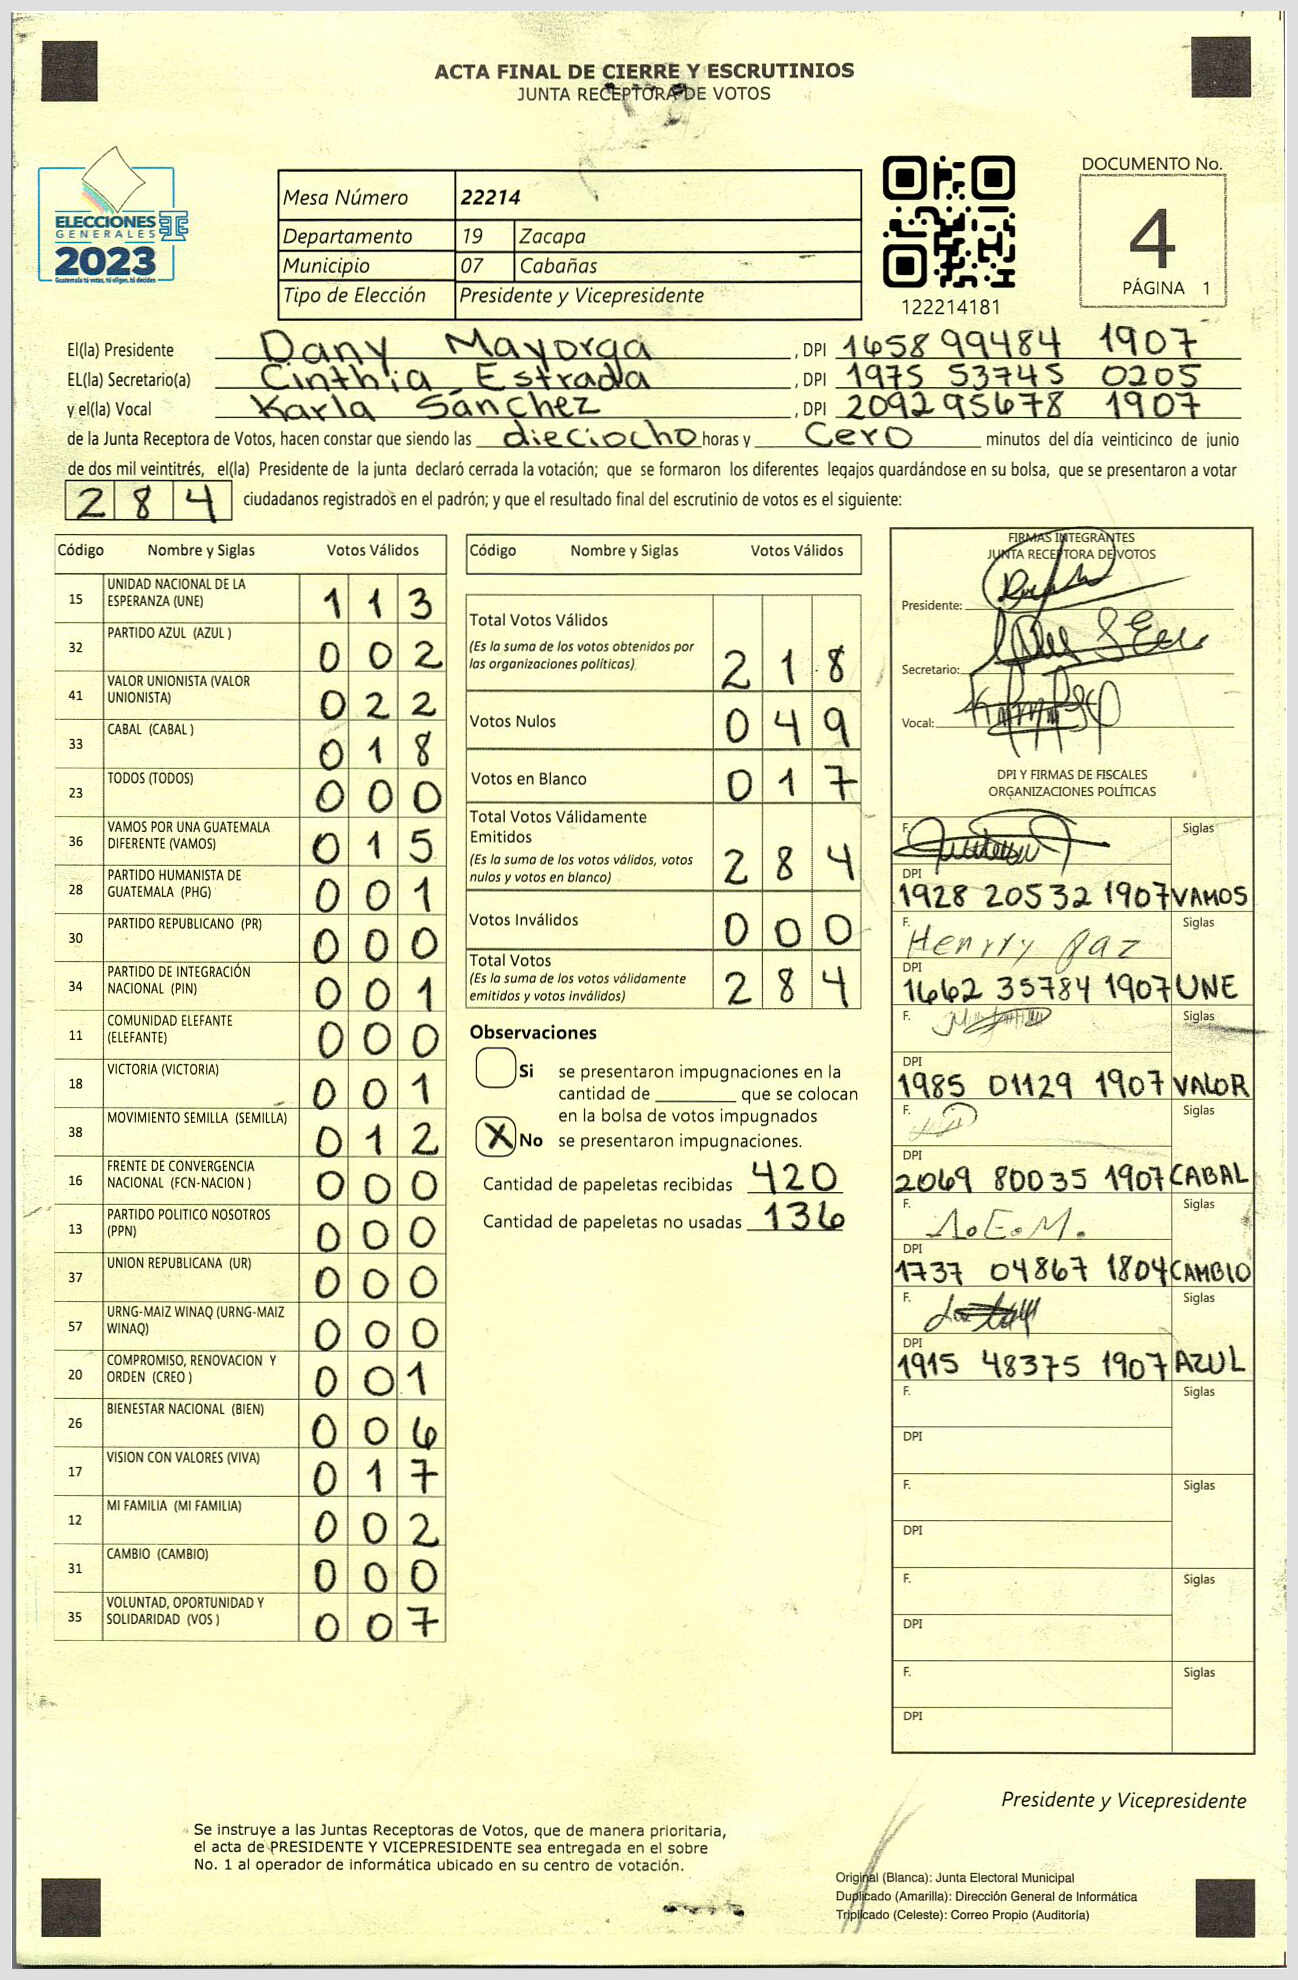 ACTA FINAL DE CIERRE Y ESCRUTINIOS
JUNTA RECEPTORA DE VOTOS
ELECCIONES
GENERALES
2023
Guatemala tú votas, tú eliges, tú decides
Mesa Número 22214
Departamento 19 Zacapa
Municipio 07 Cabañas
Tipo de Elección Presidente y Vicepresidente
122214181
DOCUMENTO No.
4
PÁGINA 1
El(la) Presidente Dany Mayorga , DPI 1658 99484 1907
EL(la) Secretario(a) Cinthia Estrada , DPI 1975 53745 0205
y el(la) Vocal Karla Sánchez , DPI 2092 95678 1907
de la Junta Receptora de Votos, hacen constar que siendo las dieciocho horas y cero minutos del día veinticinco de junio
de dos mil veintitrés, el(la) Presidente de la junta declaró cerrada la votación; que se formaron los diferentes legajos quardándose en su bolsa, que se presentaron a votar
284 ciudadanos registrados en el padrón; y que el resultado final del escrutinio de votos es el siguiente:
Código Nombre y Siglas Votos Válidos
15 UNIDAD NACIONAL DE LA ESPERANZA (UNE) 113
32 PARTIDO AZUL (AZUL ) 002
41 VALOR UNIONISTA (VALOR UNIONISTA) 022
33 CABAL (CABAL ) 018
23 TODOS (TODOS) 000
36 VAMOS POR UNA GUATEMALA DIFERENTE (VAMOS) 015
28 PARTIDO HUMANISTA DE GUATEMALA (PHG) 001
30 PARTIDO REPUBLICANO (PR) 000
34 PARTIDO DE INTEGRACIÓN NACIONAL (PIN) 001
11 COMUNIDAD ELEFANTE (ELEFANTE) 000
18 VICTORIA (VICTORIA) 001
38 MOVIMIENTO SEMILLA (SEMILLA) 012
16 FRENTE DE CONVERGENCIA NACIONAL (FCN-NACION ) 000
13 PARTIDO POLITICO NOSOTROS (PPN) 000
37 UNION REPUBLICANA (UR) 000
57 URNG-MAIZ WINAQ (URNG-MAIZ WINAQ) 000
20 COMPROMISO, RENOVACION Y ORDEN (CREO ) 001
26 BIENESTAR NACIONAL (BIEN) 006
17 VISION CON VALORES (VIVA) 017
12 MI FAMILIA (MI FAMILIA) 002
31 CAMBIO (CAMBIO) 000
35 VOLUNTAD, OPORTUNIDAD Y SOLIDARIDAD (VOS ) 007
Código Nombre y Siglas Votos Válidos
Total Votos Válidos
(Es la suma de los votos obtenidos por
las organizaciones políticas) 218
Votos Nulos 049
Votos en Blanco 017
Total Votos Válidamente
Emitidos
(Es la suma de los votos válidos, votos
nulos y votos en blanco) 284
Votos Inválidos 000
Total Votos
(Es la suma de los votos válidamente
emitidos y votos inválidos) 284
Observaciones
Si se presentaron impugnaciones en la
cantidad de ________ que se colocan
en la bolsa de votos impugnados
X No se presentaron impugnaciones.
Cantidad de papeletas recibidas 420
Cantidad de papeletas no usadas 136
FIRMAS INTEGRANTES
JUNTA RECEPTORA DE VOTOS
Presidente:
Secretario:
Vocal:
DPI Y FIRMAS DE FISCALES
ORGANIZACIONES POLÍTICAS
F. Siglas
DPI
1928 20532 1907 VAMOS
F. Henrry Paz Siglas
DPI
1662 35784 1907 UNE
F. Siglas
DPI
1985 01129 1907 VALOR
F. Siglas
DPI
2069 80035 1907 CABAL
F. A.E.M. Siglas
DPI
1737 04867 1804 CAMBIO
F. Siglas
DPI
1915 48375 1907 AZUL
F. Siglas
DPI
F. Siglas
DPI
F. Siglas
DPI
F. Siglas
DPI
Presidente y Vicepresidente
Se instruye a las Juntas Receptoras de Votos, que de manera prioritaria,
el acta de PRESIDENTE Y VICEPRESIDENTE sea entregada en el sobre
No. 1 al operador de informática ubicado en su centro de votación.
Original (Blanca): Junta Electoral Municipal
Duplicado (Amarilla): Dirección General de Informática
Triplicado (Celeste): Correo Propio (Auditoría)